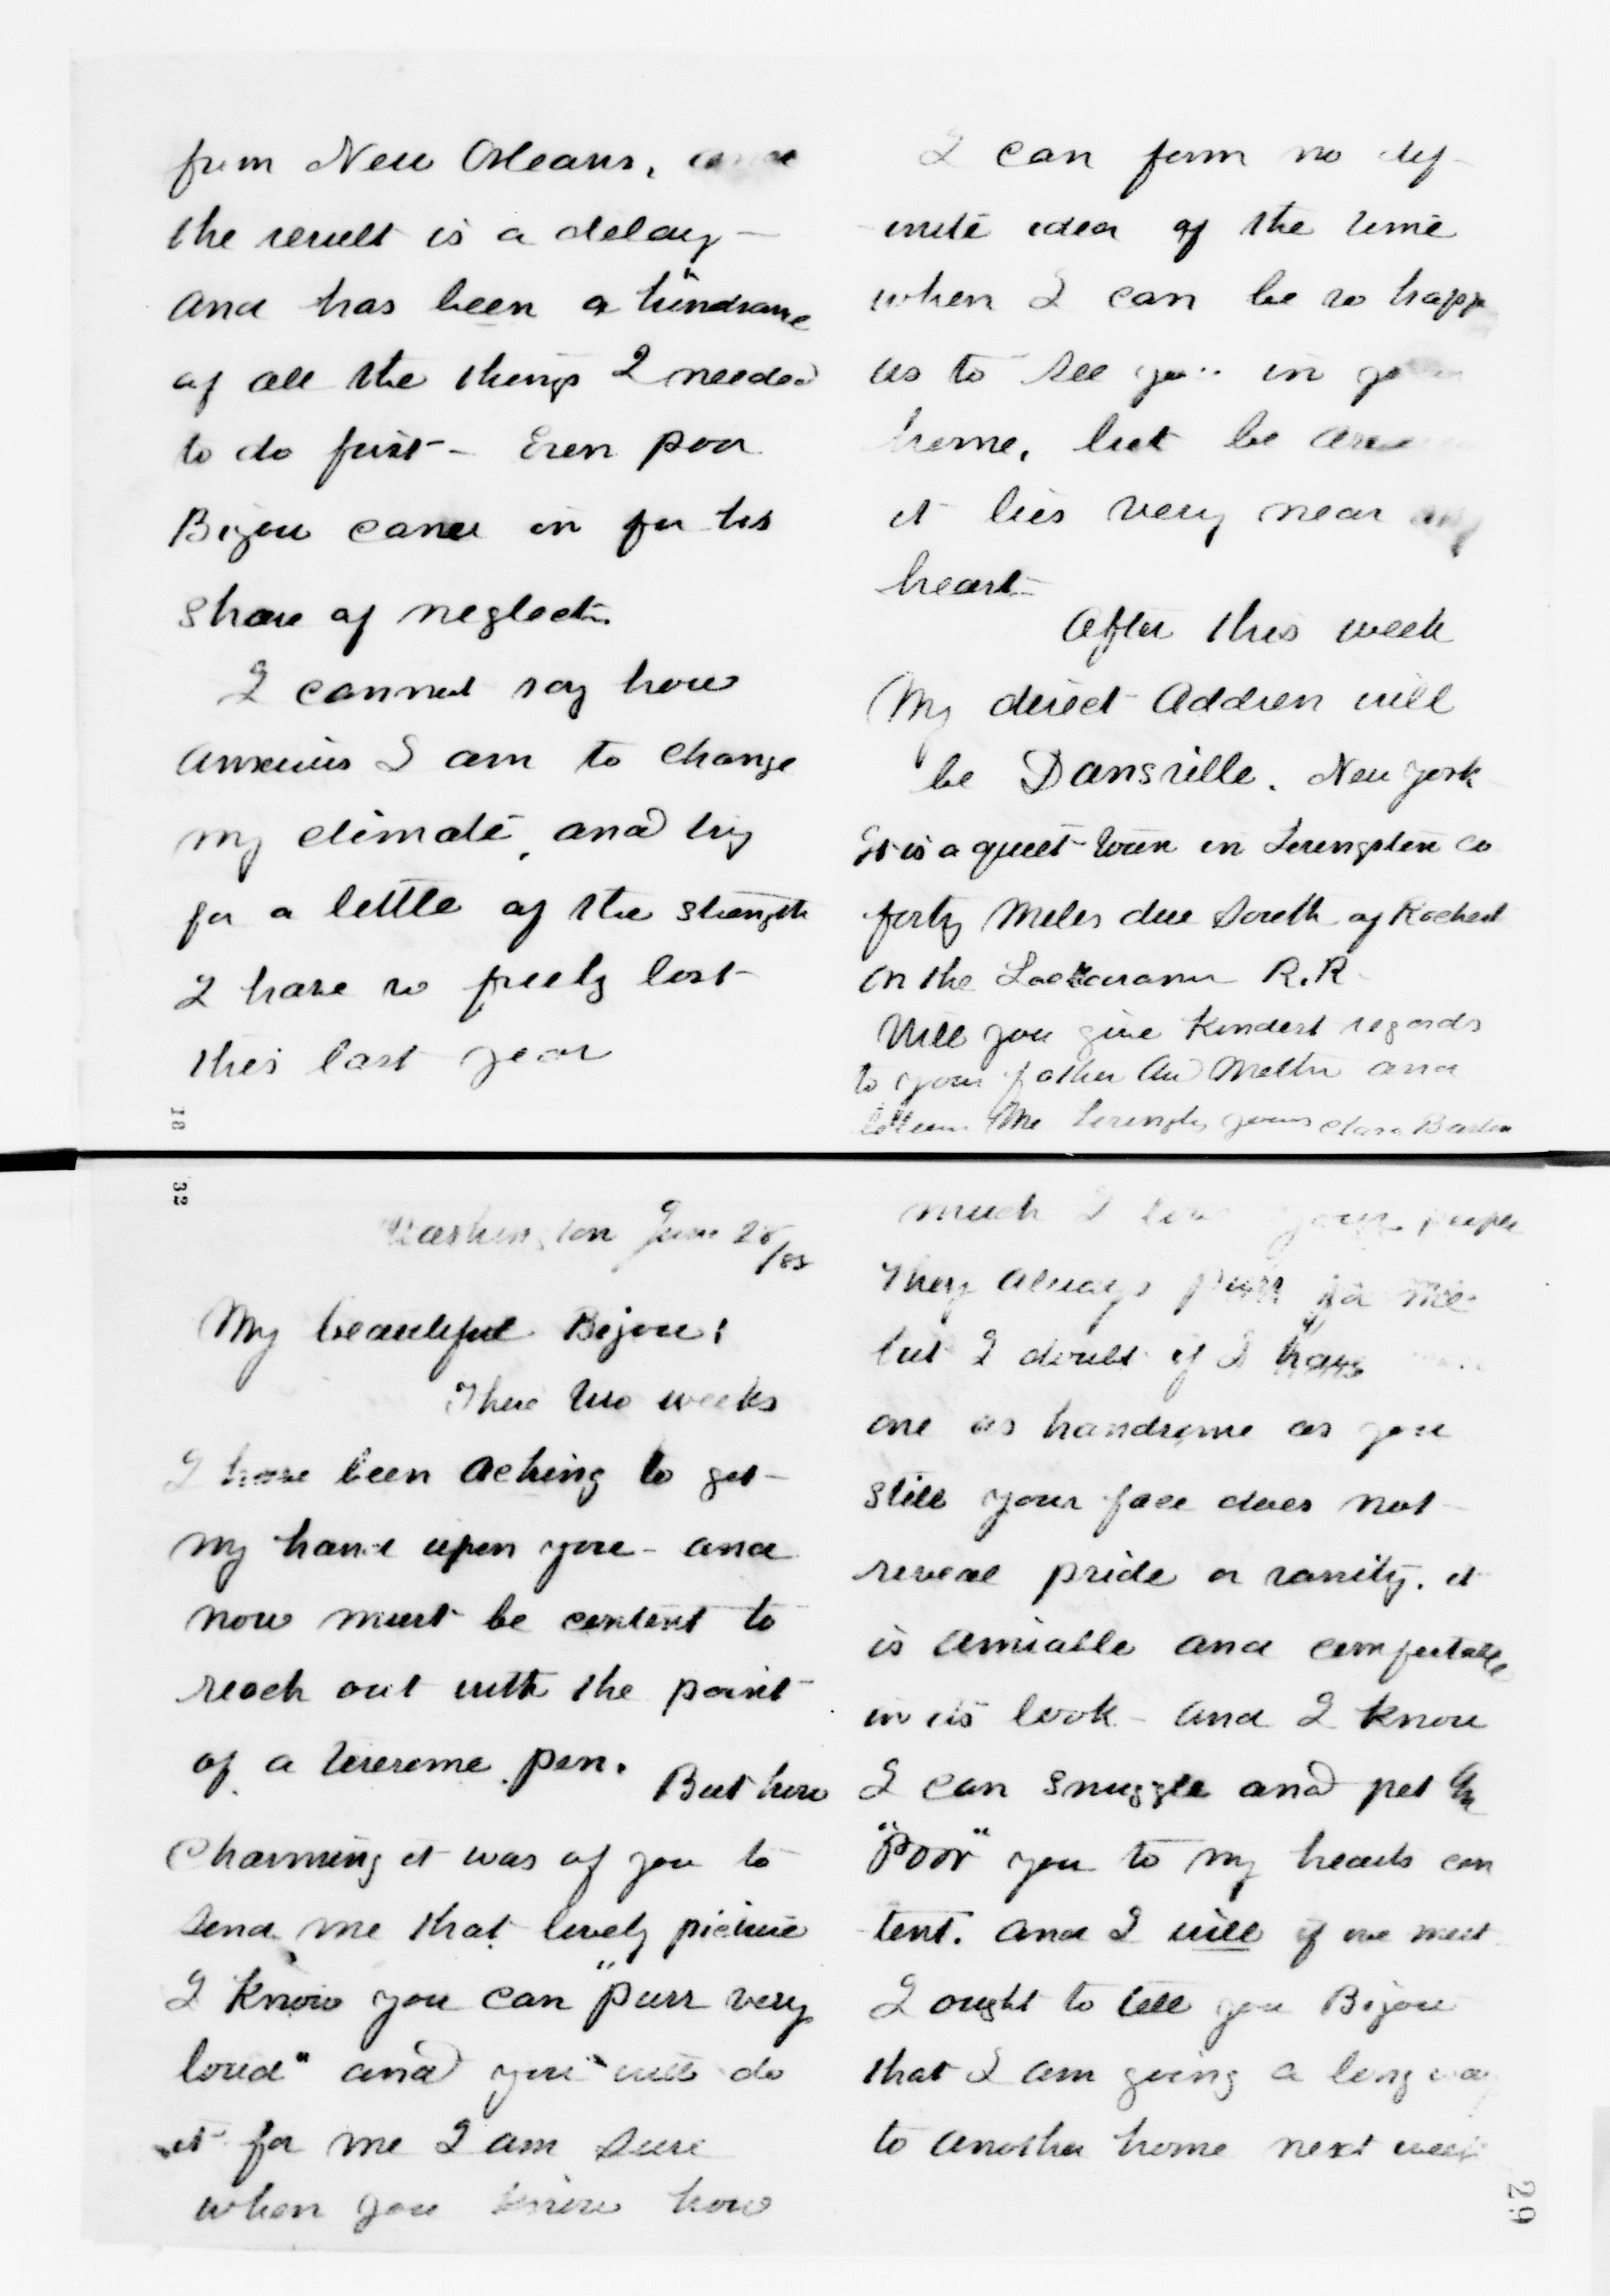 from New Orleans, and
the result is a delay -
and has been a hindrance
of all the things I needed
to do first - Even poor
Bijou came in for his
share of neglect.
I cannot say how
anxious I am to change
my climate, and try
for a little of the strength
I have so freely lost
this last year
18
I can form no def-
inite idea of the time
when I can be so happy
as to see you in your
home, but be
it lies very near my
heart -
After this week
My direct Address will
be Dansville. New York
It is a quiet town in Livingston Co
forty Miles due South of Rochest
on the Lackawanna R.R.
Will you give kindest regards
to your father and Mother and
believe Me lovingly yours Clara Barton
32
Washington June 28/85
My beautiful Bijou:
These two weeks
I have been aching to get
my hand upon you - and
now must be content to
reach out with the point
of a tiresome pen. But how
Charming it was of you to
send me that lovely picture
I know you can "purr very
loud" and you will do
it for me I am sure
when you know how
much I love your people
They always purr for me
but I doubt if I have
one as handsome as you
still your face does not
reveal pride or vanity. it
is amiable and comfortable
in its look - and I know
I can snuggle and pet &
"Poor" you to my hearts con
tent. and I will if we meet
I ought to tell you Bijou
that I am going a long way
to another home next week
29